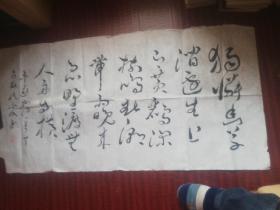 獨憐幽草
澗邊生上
有黄鸝深
樹鳴春潮
帶雨晚来
急野渡無
人舟自横